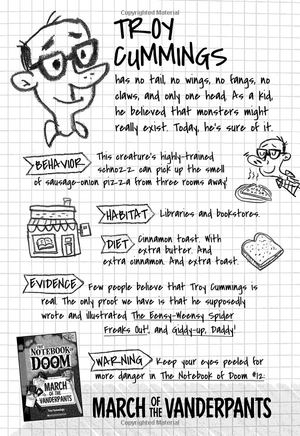 Copyrighted Material
TROY
CUMMINGS
has no tail, no wings, no fangs, no
claws, and only one head. As a kid,
he believed that monsters might
really exist. Today, he's sure of it.
BEHAVIOR This creature's highly-trained
schnozz can pick up the smell
of sausage-onion pizza from three rooms away!
HABITAT Libraries and bookstores.
DIET Cinnamon toast. With
extra butter. And
extra cinnamon. And extra toast.
EVIDENCE Few people believe that Troy Cummings is
real. The only proof we have is that he supposedly
wrote and illustrated The Eensy-Weensy Spider
Freaks Out! and Giddy-up, Daddy!
THE NOTEBOOK OF
DOOM
MARCH
OF THE
VANDERPANTS
Troy Cummings
WARNING Keep your eyes peeled for
more danger in The Notebook of Doom #12:
MARCH OF THE VANDERPANTS
Copyrighted Material